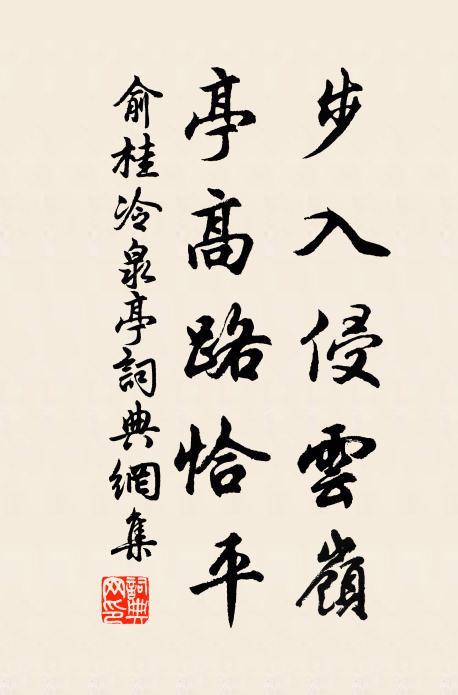 步入侵雲嶺
亭高路恰平
俞桂冷泉亭詞典網集
詞典网印